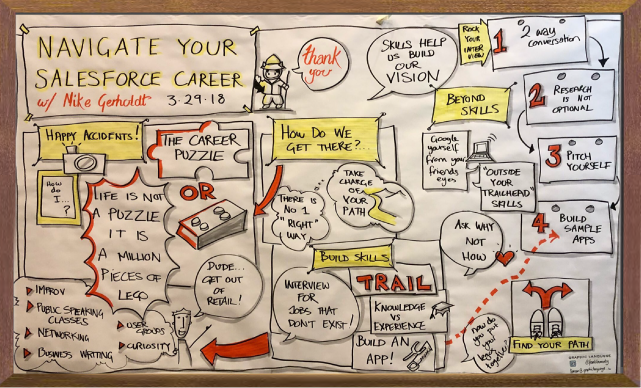 NAVIGATE YOUR
SALESFORCE CAREER
w/ Mike Gerholdt 3-29-18
thank
you
SKILLS HELP
US BUILD
OUR
VISION
ROCK
YOUR
INTER
VIEW
1
2 WAY
CONVERSATION
2
RESEARCH
IS NOT
OPTIONAL
3
PITCH
YOURSELF
4
BUILD
SAMPLE
APPS
BEYOND
SKILLS
Google
yourself
from your
friends
eyes
"OUTSIDE
YOUR
TRAILHEAD"
SKILLS
HAPPY ACCIDENTS!
HOW DO
I...
?
THE CAREER
PUZZLE
LIFE IS NOT
A PUZZLE
IT IS
A MILLION
PIECES OF
LEGO
OR
DUDE...
GET OUT
OF
RETAIL!
IMPROV
PUBLIC SPEAKING
CLASSES
NETWORKING
BUSINESS WRITING
USER
GROUPS
CURIOSITY
HOW DO WE
GET THERE?...
THERE IS
NO 1
"RIGHT"
WAY
TAKE
CHARGE
OF
YOUR
PATH
BUILD SKILLS
INTERVIEW
FOR
JOBS THAT
DON'T EXIST!
TRAIL
KNOWLEDGE
VS
EXPERIENCE
BUILD AN
APP!
ASK WHY
NOT
HOW
how do you
put your
legos
together?
FIND YOUR PATH